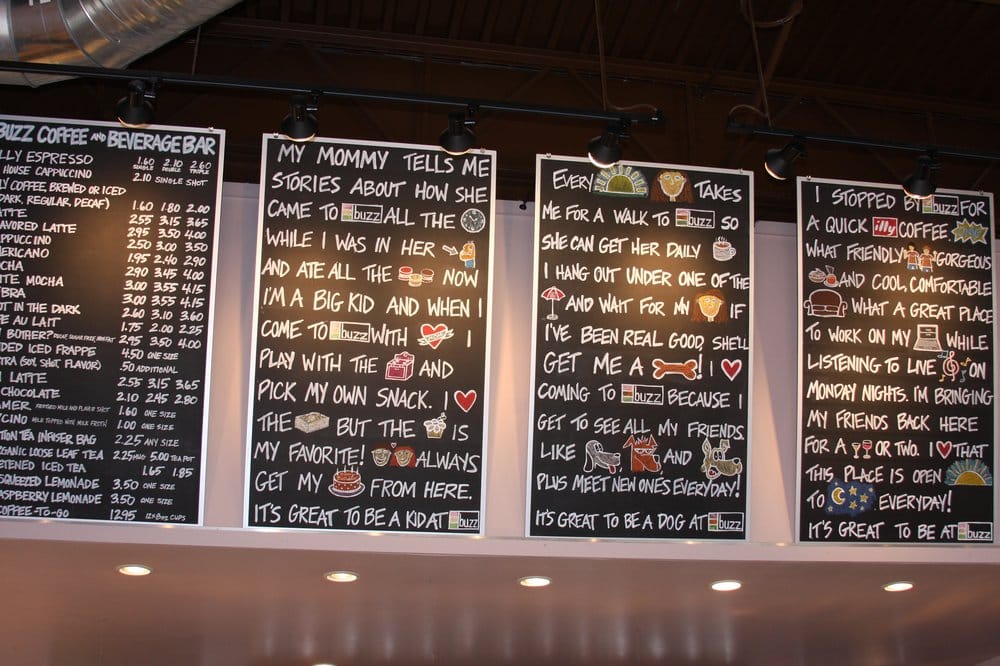 BUZZ COFFEE AND BEVERAGE BAR
LLY ESPRESSO 1.60 2.10 2.60
SINGLE DOUBLE TRIPLE
HOUSE CAPPUCCINO 2.10 SINGLE SHOT
LY COFFEE, BREWED OR ICED
DARK, REGULAR, DECAF) 1.60 1.80 2.00
ATTE 2.55 3.15 3.65
AVORED LATTE 2.95 3.50 4.00
APPUCCINO 2.50 3.00 3.50
MERICANO 1.95 2.40 2.90
OCHA 2.90 3.45 4.00
ITE MOCHA 3.00 3.55 4.15
BRA 3.00 3.55 4.15
OT IN THE DARK 2.60 3.10 3.60
FE AU LAIT 1.75 2.00 2.25
BOTHER? 2.95 3.50 4.00
DED ICED FRAPPE 4.50 ONE SIZE
TRA (SOY, SHOT, FLAVOR) .50 ADDITIONAL
I LATTE 2.55 3.15 3.65
CHOCOLATE 2.10 2.45 2.80
AMER 1.60 ONE SIZE
CINO MILK TOPPED WITH MILK FROTH 1.00 ONE SIZE
TION TEA INFUSER BAG 2.25 ANY SIZE
RGANIC LOOSE LEAF TEA 2.25 MUG 5.00 TEA POT
ETENED ICED TEA 1.65 1.85
SQUEEZED LEMONADE 3.50 ONE SIZE
RASPBERRY LEMONADE 3.50 ONE SIZE
COFFEE-TO-GO 12.95 12 X 8OZ CUPS
MY MOMMY TELLS ME
STORIES ABOUT HOW SHE
CAME TO buzz ALL THE
WHILE I WAS IN HER
AND ATE ALL THE NOW
I'M A BIG KID AND WHEN I
COME TO buzz WITH I
PLAY WITH THE AND
PICK MY OWN SNACK. I
THE BUT THE IS
MY FAVORITE! ALWAYS
GET MY FROM HERE.
IT'S GREAT TO BE A KID AT buzz
EVERY TAKES
ME FOR A WALK TO buzz SO
SHE CAN GET HER DAILY
I HANG OUT UNDER ONE OF THE
AND WAIT FOR MY IF
I'VE BEEN REAL GOOD, SHE'LL
GET ME A ! I
COMING TO buzz BECAUSE I
GET TO SEE ALL MY FRIENDS.
LIKE AND
PLUS MEET NEW ONES EVERYDAY!
IT'S GREAT TO BE A DOG AT buzz
I STOPPED BY buzz FOR
A QUICK illy COFFEE.
WHAT FRIENDLY GORGEOUS
AND COOL, COMFORTABLE
WHAT A GREAT PLACE
TO WORK ON MY WHILE
LISTENING TO LIVE ON
MONDAY NIGHTS. I'M BRINGING
MY FRIENDS BACK HERE
FOR A OR TWO. I THAT
THIS PLACE IS OPEN
TO EVERYDAY!
IT'S GREAT TO BE AT buzz